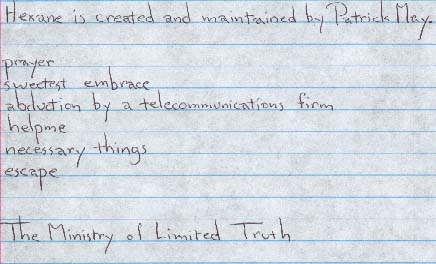 Hexane is created and maintained by Patrick May.
prayer
sweetest embrace
abduction by a telecommunications firm
helpme
necessary things
escape
The Ministry of Limited Truth